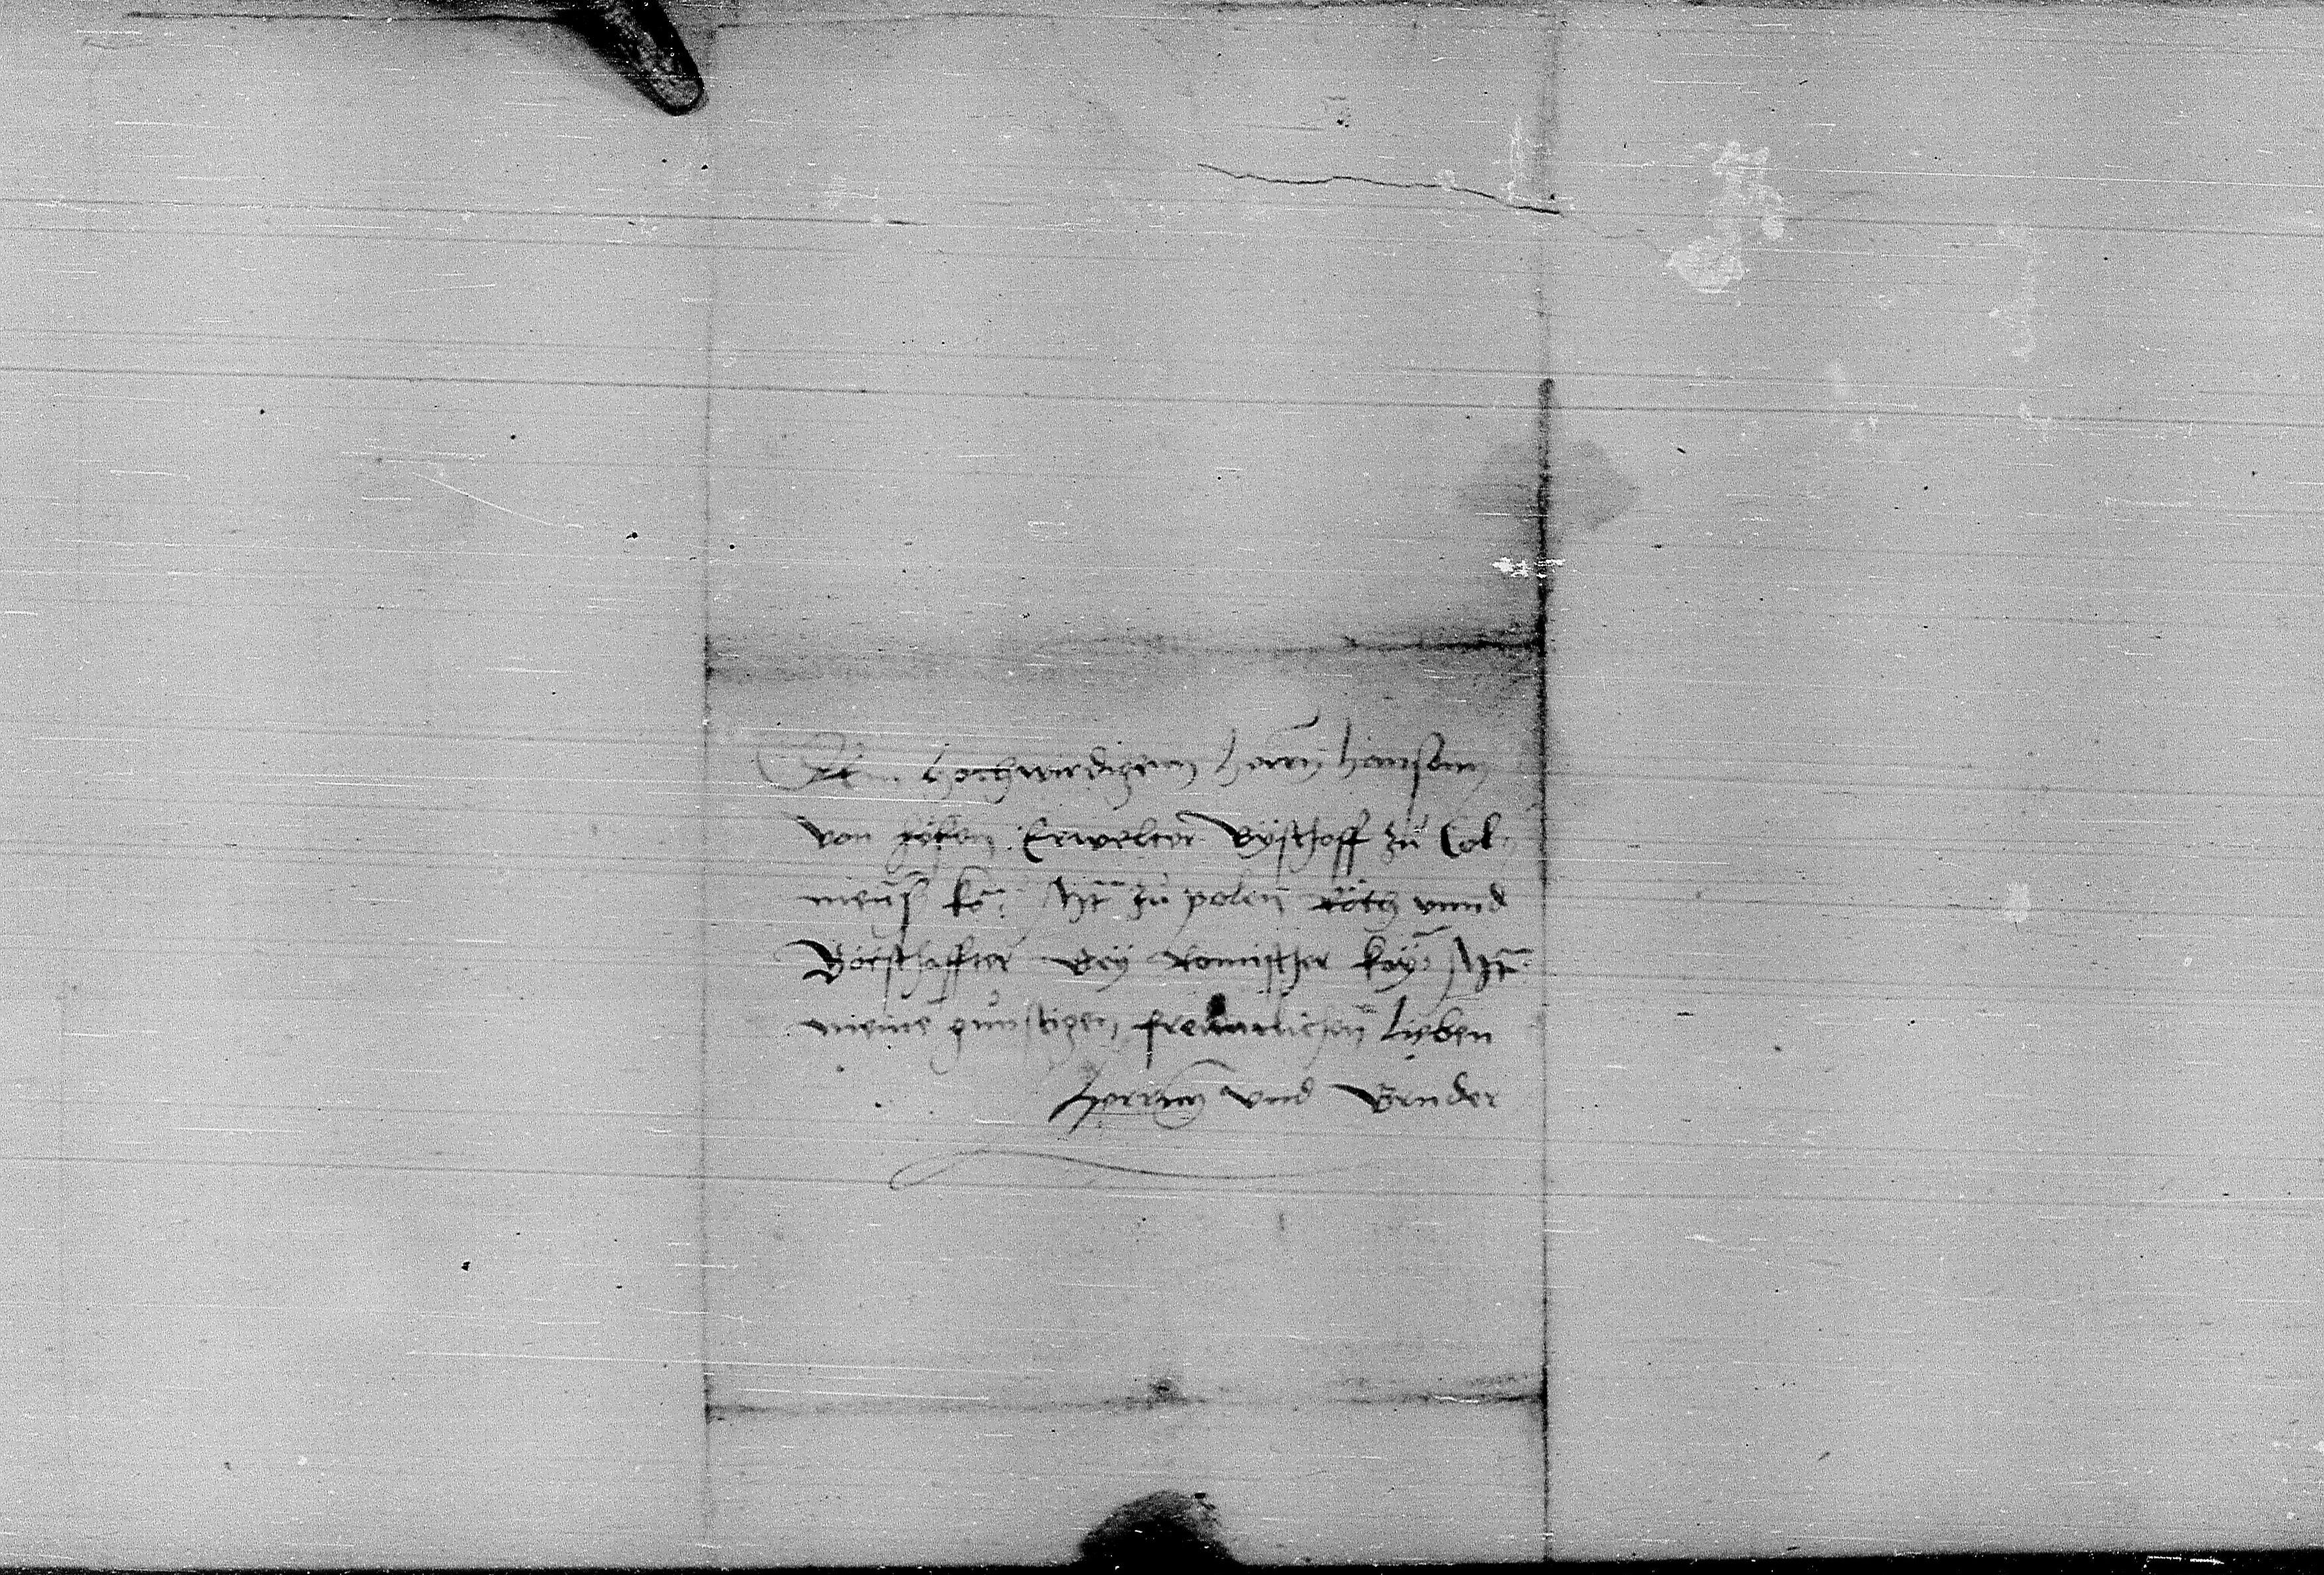 Dem Hochwirdigenn Herrn Hansenn
von Höfen Erwelter Byschoff zu Col-
mens ko: Mt zu polen röth vnnd
Bötschaffter bey Romischer kay: Mt:
meine günstigen freuntlichen lieben
Herren vnd Bruder